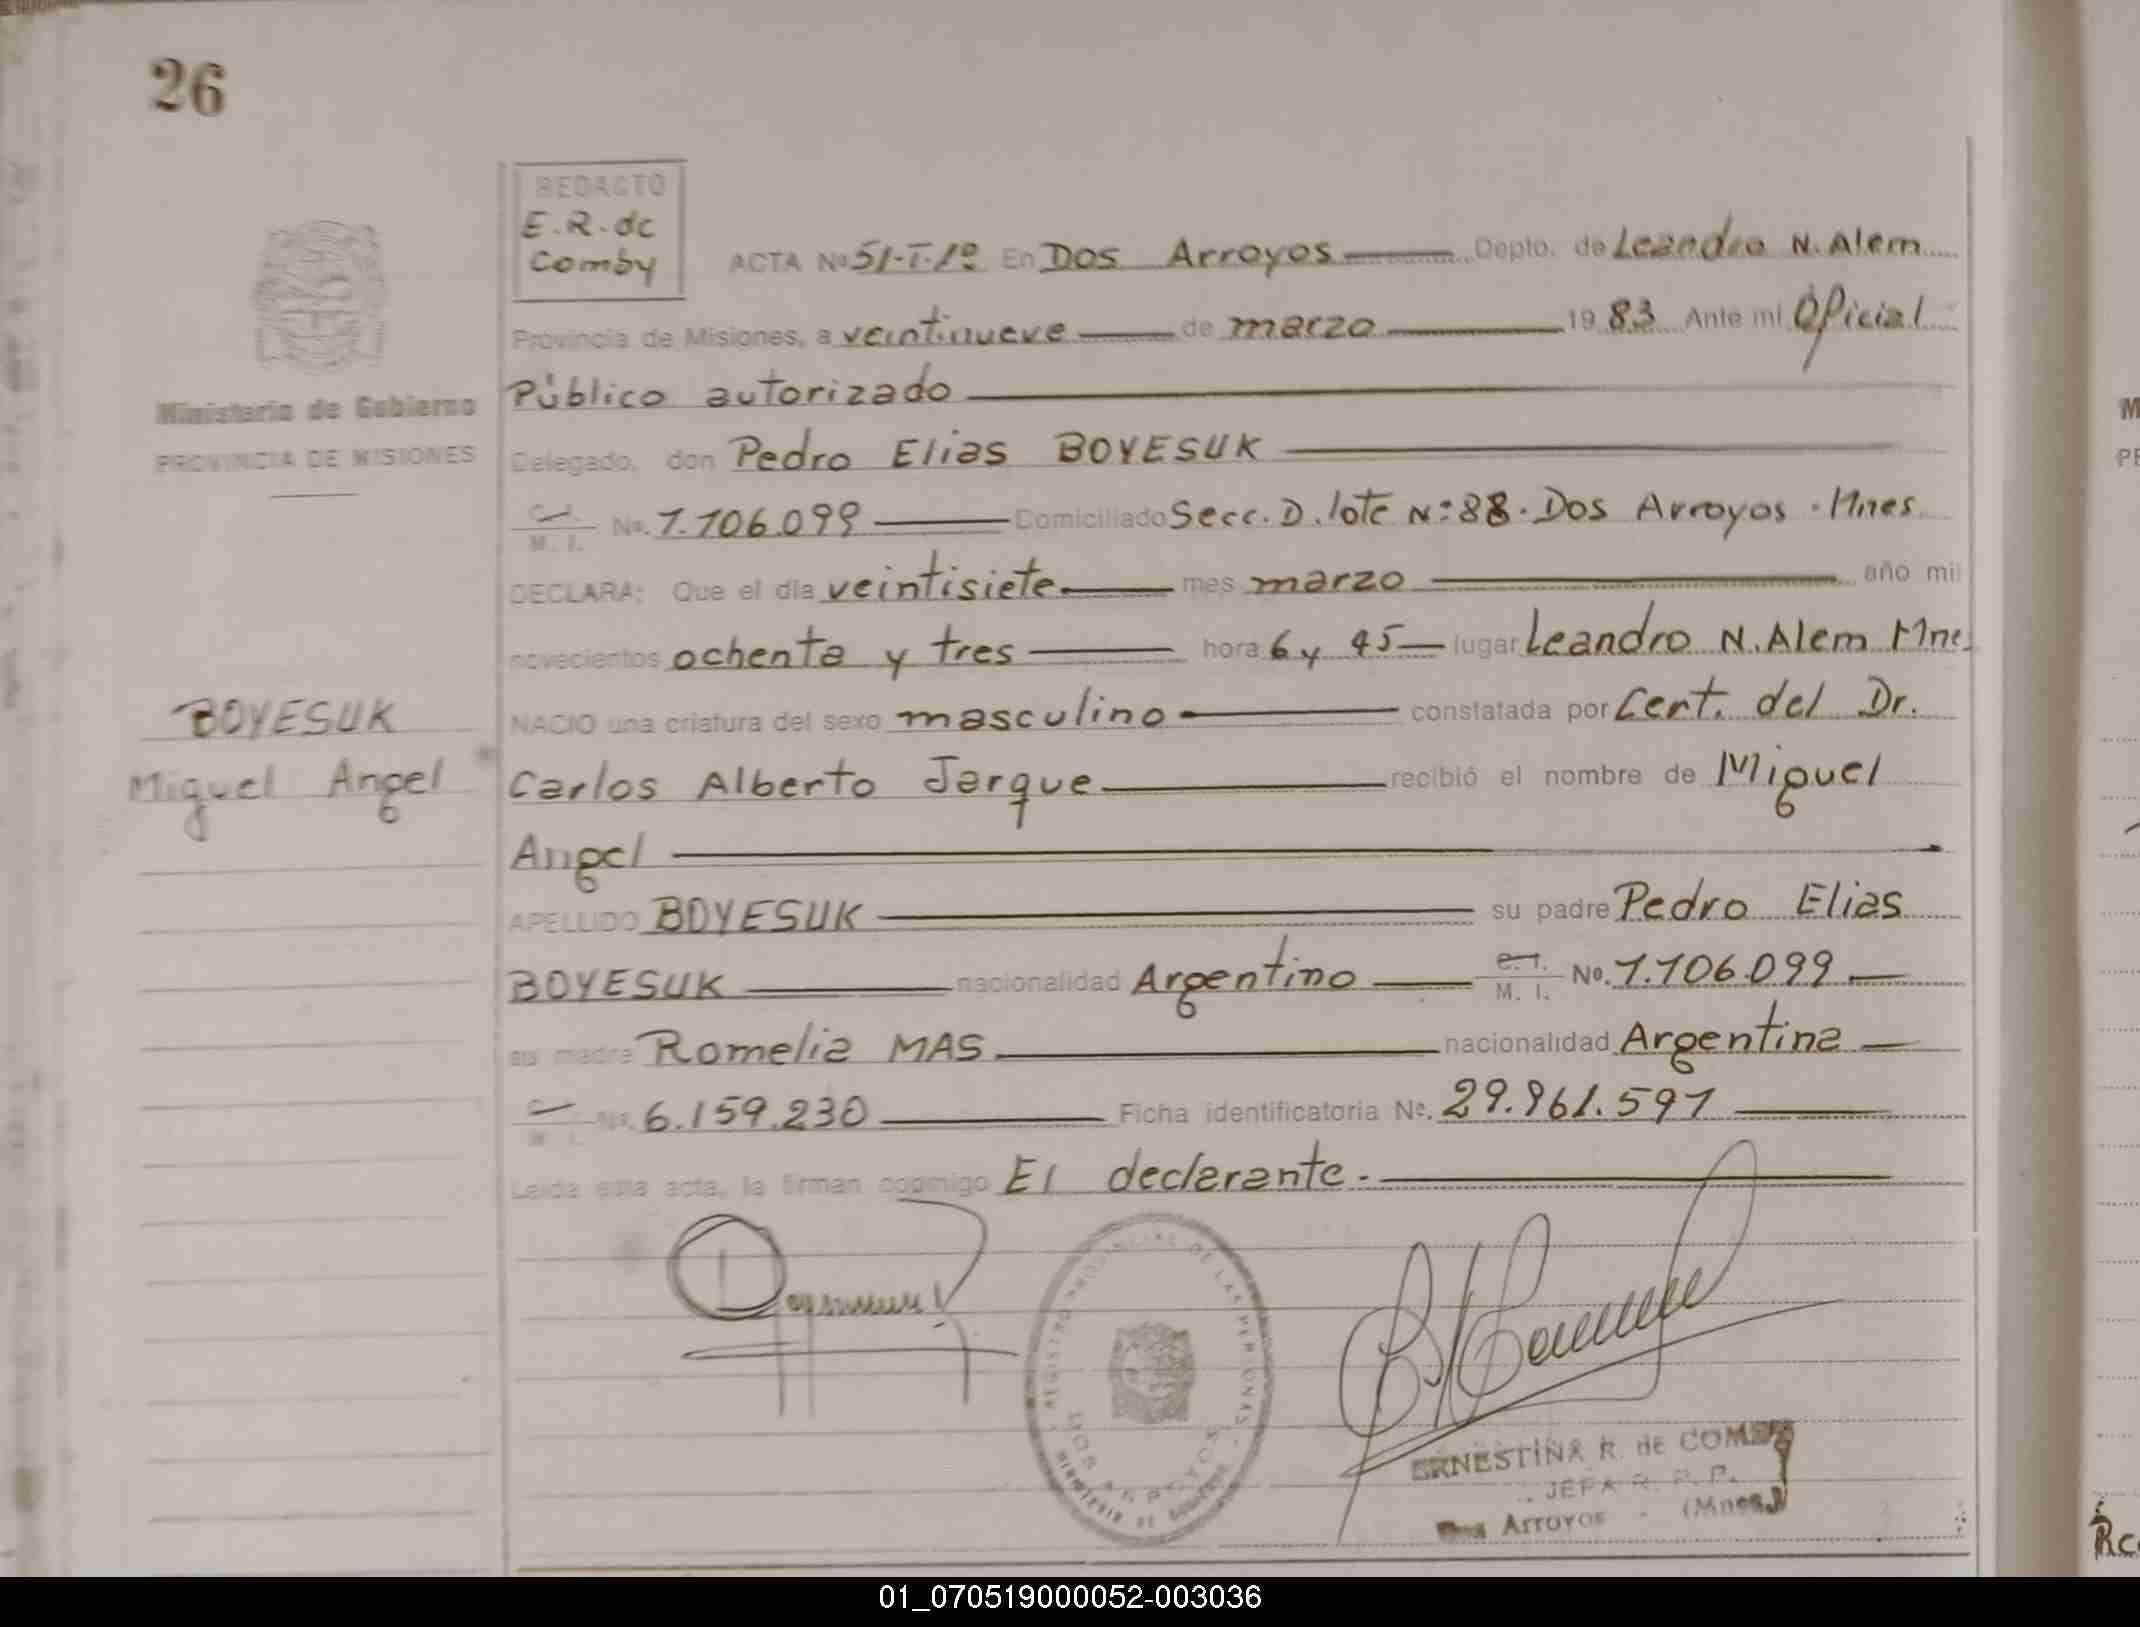 26
REDACTO
E.R. de
Comby
ACTA Nº 51-T-1º En Dos Arroyos Depto. de Leandro N. Alem
Provincia de Misiones, a veintinueve de marzo 1983 Ante mi Oficial
Público autorizado
Ministerio de Gobierno
PROVINCIA DE MISIONES
Delegado, don Pedro Elias BOYESUK
C.I.
M. I. No. 7.706.099 Domiciliado Secc. D. lote Nº 88. Dos Arroyos - Mnes
DECLARA: Que el día veintisiete mes marzo año mil
novecientos ochenta y tres hora 6 y 45 lugar Leandro N. Alem Mnes
BOYESUK
Miguel Angel
NACIO una criatura del sexo masculino constatada por Cert. del Dr.
Carlos Alberto Jarque recibió el nombre de Miguel
Angel
APELLIDO BOYESUK su padre Pedro Elias
BOYESUK nacionalidad Argentino C.I.
M. I. Nº. 7.706.099
su madre Romelia MAS nacionalidad Argentina
M. I. Nº. 6.159.230 Ficha identificatoria Nº. 29.961.597
Leída esta acta, la firman conmigo El declarante.
REGISTRO PROVINCIAL DE LAS PERSONAS
DOS ARROYOS
MINISTERIO DE GOBIERNO
ERNESTINA R. de COMBY
JEFA R. P. P.
Dos Arroyos - (Mnes.)
M
PR
Rc
01_070519000052-003036